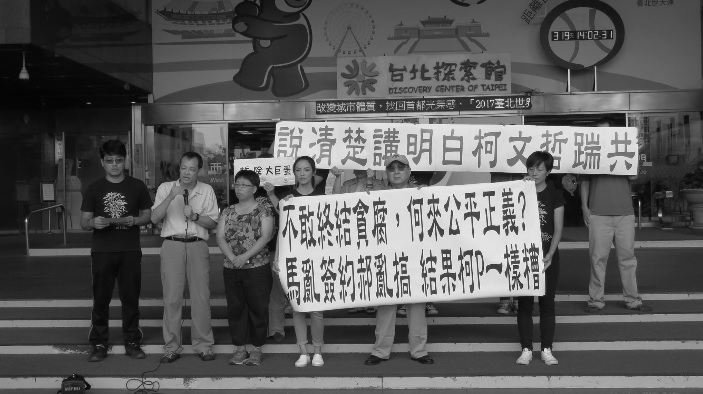 319 14:02:31
台北探索館
DISCOVERY CENTER OF TAIPEI
「2017臺北世
說清楚講明白柯文哲踹共
除大巨蛋
不敢終結貪腐，何來公平正義?
馬亂簽約郝亂搞 結果柯P一樣糟